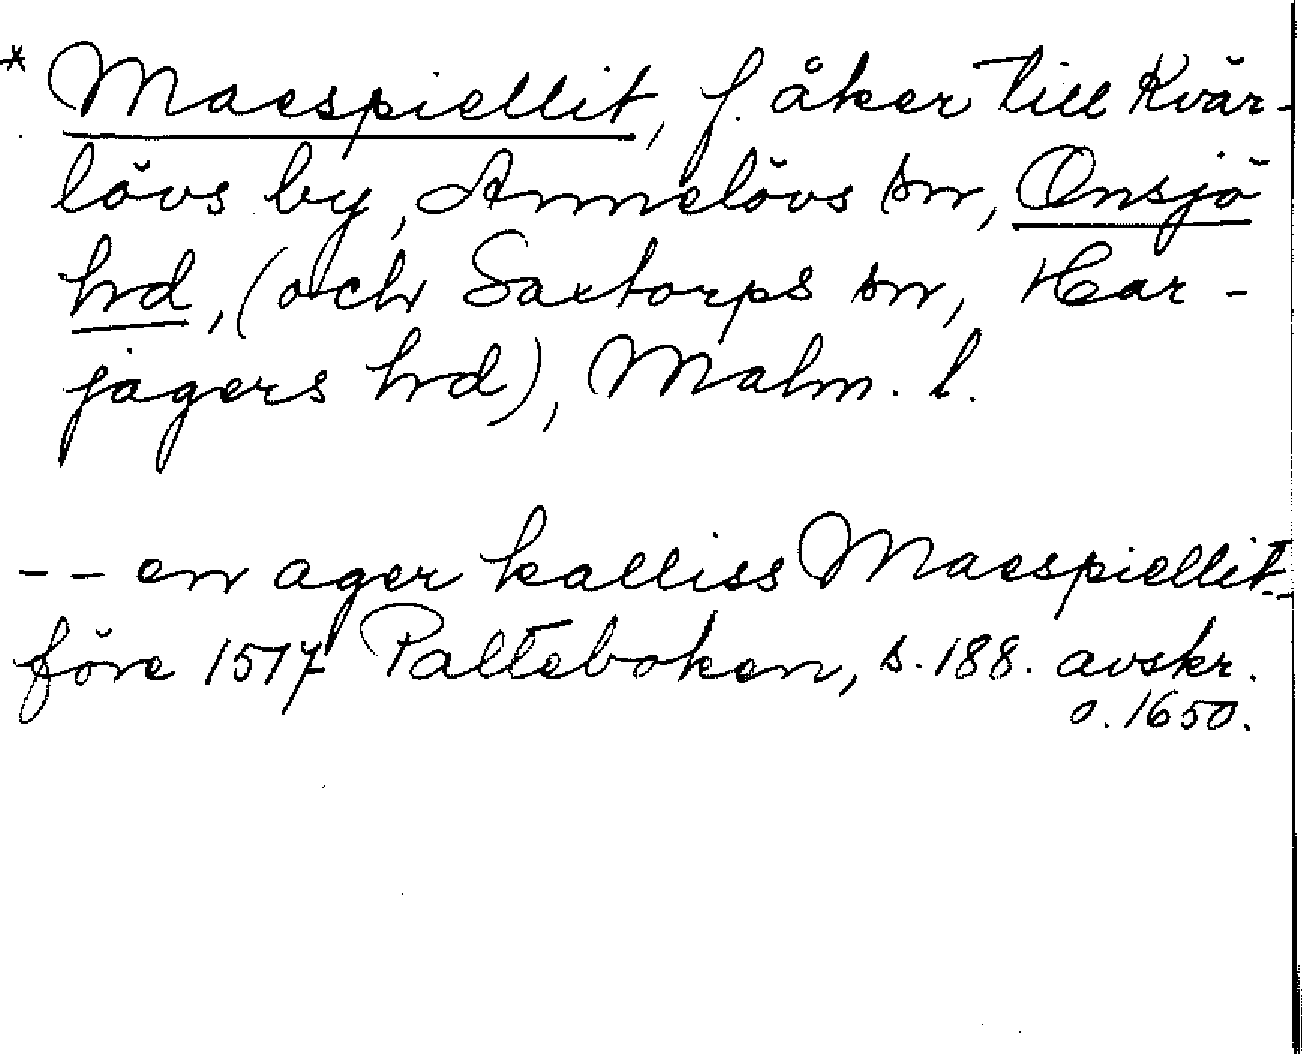 * Maespiellit, f. åker till Kvär-
lövs by, Annelövs sn, Onsjö
hrd, (och Saxtorps sn, Har-
jagers hrd), Malm. l.
-- en ager kalliss Maespiellit --
före 1517 Palteboken, s. 188. avskr.
o. 1650.